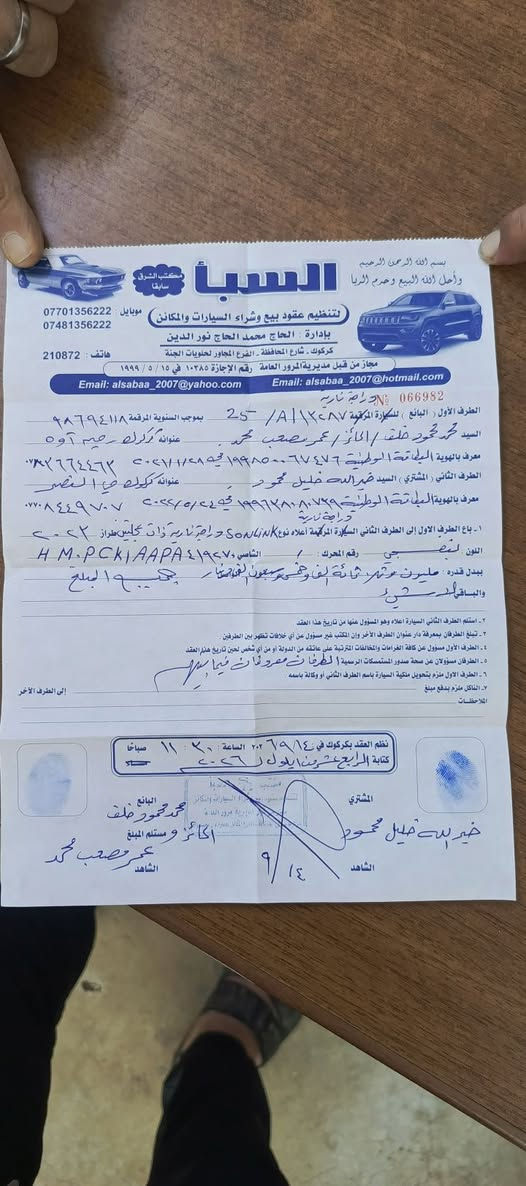 بسم الله الرحمن الرحيم
وأحل الله البيع وحرم الربا
السبأ
مكتب الشرق سابقا
لتنظيم عقود بيع وشراء السيارات والمكائن
بإدارة : الحاج محمد الحاج نور الدين
كركوك - شارع المحافظة - الفرع المجاور لحلويات الجنة
موبايل : 07701356222
07481356222
هاتف : 210872
مجاز من قبل مديرية المرور العامة رقم الإجازة ١٠٣٨٥ في ١٥ / ٥ / ١٩٩٩
Email: alsabaa_2007@yahoo.com Email: alsabaa_2007@hotmail.com
دراجة نارية
№ 066982
الطرف الأول ( البائع ) للسيارة المرقمة ١٣٢٨٧ /A/ 25 بموجب السنوية المرقمة ٩٨٦٩٤١١٨
السيد محمد محمود خلف / الحائز / عمر مصعب محمد عنوانه كركوك
معرف بالهوية البطاقة الوطنية ٢٠٢١/١/٢٨
الطرف الثاني ( المشتري ) السيد خيرالله خليل محمود عنوانه كركوك حي النصر
معرف بالهوية البطاقة الوطنية ٢٠٢٢/٥/٢٤
دراجة نارية
١- باع الطرف الاول إلى الطرف الثاني السيارة المرقمة اعلاه نوع SONLINK دراجة نارية ذات عجلتين طراز ٢٠٢٣
اللون بنفسجي رقم المحرك : / الشاسي H M.PCK1AAPA٤١٩٢٧
ببدل قدره : مليون
والباقي لا شيء
٢- استلم الطرف الثاني السيارة اعلاه وهو المسؤول عنها من تاريخ هذا العقد
٣- تبلغ الطرفان بمعرفة دار عنوان الطرف الأخر وإن المكتب غير مسؤول عن أي خلافات تظهر بين الطرفين
٤- الطرف الأول مسؤول عن كافة الغرامات والمخالفات المترتبة على عاتقه من الدولة أو من أي شخص لحين تاريخ هذا العقد
٥- الطرفان مسؤولان عن صحة صدور المستمسكات الرسمية الطرفان
٦- الطرف الاول ملزم بتحويل ملكية السيارة باسم الطرف الثاني أو وكالة باسمه
٧- الناكل ملزم بدفع مبلغ إلى الطرف الأخر
الملاحظات
نظم العقد بكركوك في ٩/١٤ /٢٠٢٦ الساعة : ١١:٣٠ صباحا
كتابة الرابع عشر من ايلول لـ ٢٠٢٦
المشتري
خيرالله خليل محمود
الشاهد
البائع
محمد محمود خلف
الحائز ومستلم المبلغ
عمر مصعب محمد
الشاهد
٩/١٤